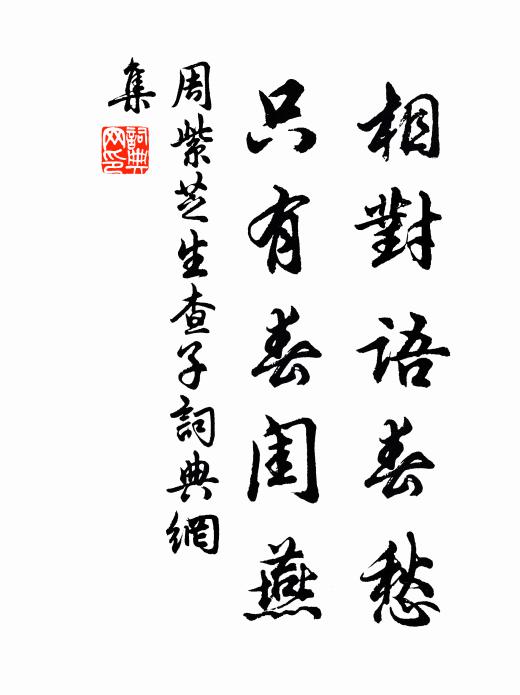 相對語春愁
只有春閨燕
周紫芝生查子詞典網
集
詞典网印